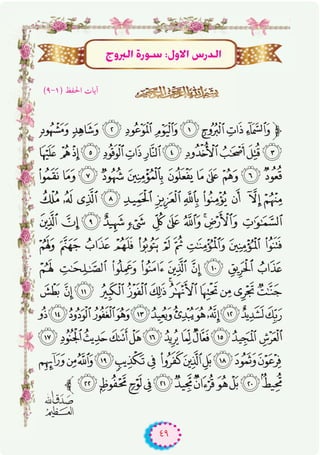 الدرس الاول: سورة البروج
بِسْمِ اللَّهِ الرَّحْمَٰنِ الرَّحِيمِ
آيات الحفظ (١-٩)
﴿ وَٱلسَّمَآءِ ذَاتِ ٱلْبُرُوجِ ١ وَٱلْيَوْمِ ٱلْمَوْعُودِ ٢ وَشَاهِدٍ وَمَشْهُودٍ
٣ قُتِلَ أَصْحَٰبُ ٱلْأُخْدُودِ ٤ ٱلنَّارِ ذَاتِ ٱلْوَقُودِ ٥ إِذْ هُمْ عَلَيْهَا
قُعُودٌ ٦ وَهُمْ عَلَىٰ مَا يَفْعَلُونَ بِٱلْمُؤْمِنِينَ شُهُودٌ ٧ وَمَا نَقَمُوا۟
مِنْهُمْ إِلَّآ أَن يُؤْمِنُوا۟ بِٱللَّهِ ٱلْعَزِيزِ ٱلْحَمِيدِ ٨ ٱلَّذِى لَهُۥ مُلْكُ
ٱلسَّمَٰوَٰتِ وَٱلْأَرْضِ ۚ وَٱللَّهُ عَلَىٰ كُلِّ شَىْءٍ شَهِيدٌ ٩ إِنَّ ٱلَّذِينَ
فَتَنُوا۟ ٱلْمُؤْمِنِينَ وَٱلْمُؤْمِنَٰتِ ثُمَّ لَمْ يَتُوبُوا۟ فَلَهُمْ عَذَابُ جَهَنَّمَ وَلَهُمْ
عَذَابُ ٱلْحَرِيقِ ١٠ إِنَّ ٱلَّذِينَ ءَامَنُوا۟ وَعَمِلُوا۟ ٱلصَّٰلِحَٰتِ لَهُمْ
جَنَّٰتٌ تَجْرِى مِن تَحْتِهَا ٱلْأَنْهَٰرُ ۚ ذَٰلِكَ ٱلْفَوْزُ ٱلْكَبِيرُ ١١ إِنَّ بَطْشَ
رَبِّكَ لَشَدِيدٌ ١٢ إِنَّهُۥ هُوَ يُبْدِئُ وَيُعِيدُ ١٣ وَهُوَ ٱلْغَفُورُ ٱلْوَدُودُ ١٤ ذُو
ٱلْعَرْشِ ٱلْمَجِيدُ ١٥ فَعَّالٌ لِّمَا يُرِيدُ ١٦ هَلْ أَتَىٰكَ حَدِيثُ ٱلْجُنُودِ ١٧
فِرْعَوْنَ وَثَمُودَ ١٨ بَلِ ٱلَّذِينَ كَفَرُوا۟ فِى تَكْذِيبٍ ١٩ وَٱللَّهُ مِن وَرَآئِهِم
مُّحِيطٌۢ ٢٠ بَلْ هُوَ قُرْءَانٌ مَّجِيدٌ ٢١ فِى لَوْحٍ مَّحْفُوظٍۭ ٢٢ ﴾
صدق الله العظيم
٤٩